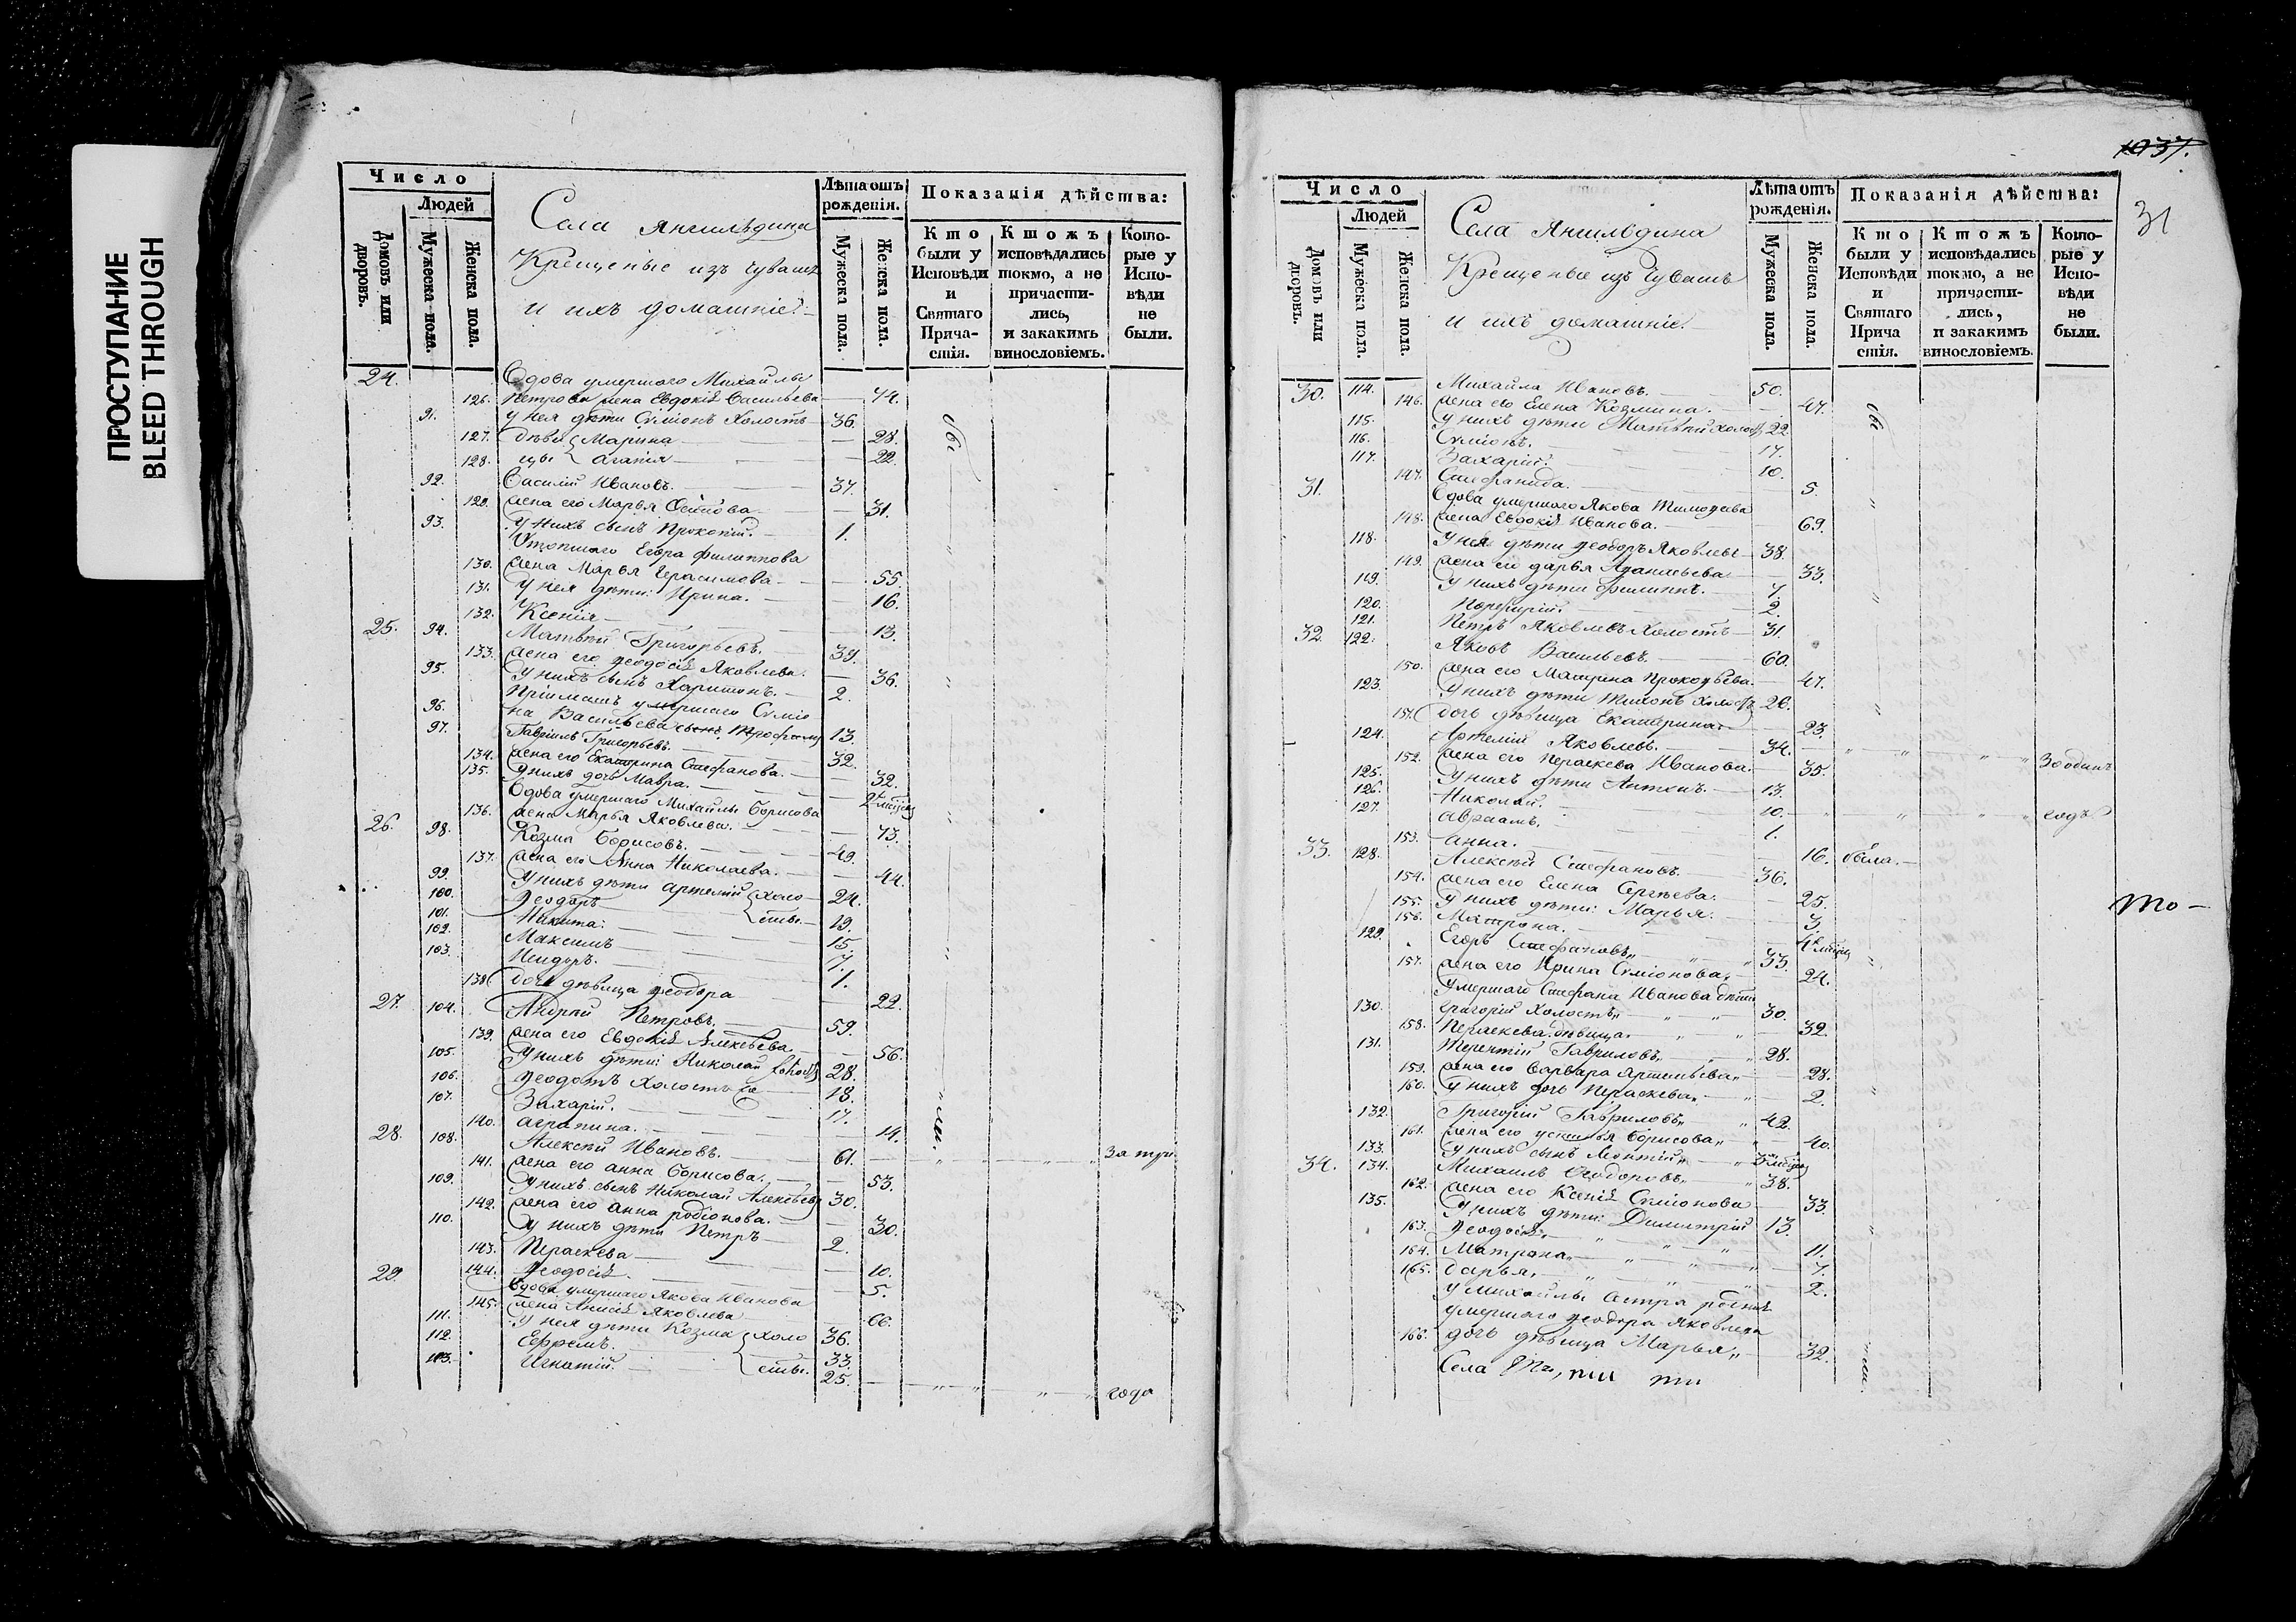 ПРОСТУПАНИЕ
BLEED THROUGH
Число
Людей
Домовъ или дворовъ.
Мужеска пола.
Женска пола.
Села Янгильдина
Крещеные изъ чувашъ
и ихъ домашніе:
Лѣта отъ рожденія.
Мужеска пола.
Женска пола.
Показанія дѣйства:
Кто были у Исповѣди и Святаго Прича-стія.
Ктожъ исповѣдались токмо, а не причасти-лись, и закакимъ винословіемъ.
Кото-рые у Испо-вѣди не были.
24. Вдова умершаго Михайлы
126. Петрова жена Евдокія Васильева 74.
91. у нея дѣти Симіонъ Холостъ 36. бы
127. дѣви Марина 28.
128. цы Агапія 22.
92. Василій Ивановъ. 37.
129. жена его Марья Осипова 31.
93. у нихъ сынъ Прокопій. 1.
Утопшаго Егора Филиппова
130. жена Марья Герасимова 55.
131. у нея дѣти: Ирина. 16.
132. Ксенія 13.
25. 94. Матвѣй Григорьевъ. 39.
133. жена его Феодосія Яковлева. 36.
95. у нихъ сынъ Харитонъ. 2.
Пріимышъ умершаго Симіо
96. на Васильева сынъ Трофимъ 13.
97. Гавріилъ Григорьевъ. 32.
134. жена его Екатерина Стефанова. 32.
135. у нихъ дочь Мавра.
Вдова умершаго Михайлы Борисова
136. жена Марья Яковлева. 73.
26. 98. Козма Борисовъ. 49.
137. жена его Анна Николаева. 44.
99. у нихъ дѣти Артемій холо 24.
100. Феодоръ сты. 19.
101. Никита: 15.
102. Максимъ 7.
103. Исидоръ. 1.
138. дочь дѣвица Феодора 22.
27. 104. Андрей Петровъ. 59.
139. жена его Евдокія Алексѣева. 56.
105. у нихъ дѣти: Николай холостъ 28.
106. Феодотъ Холостъ 18.
107. Захарій. 17.
140. Агрипина. 14. ли.
28. 108. Алексѣй Ивановъ. 61. за три
141. жена его Анна Борисова. 53.
109. у нихъ сынъ Николай Алексѣевъ 30.
142. жена его Анна Родіонова. 30.
110. у нихъ дѣти Петръ 2.
143. Параскева 10.
144. Феодосія. 5.
29. Вдова умершаго Якова Иванова
145. жена Анисія Яковлева 66.
111. у нея дѣти Козма холо 36.
112. Ефремъ. 33.
113. Игнатій. сты. 25. года
1037.
31
Число
Людей
Домовъ или дворовъ.
Мужеска пола.
Женска пола.
Села Янгильдина
Крещеные изъ чувашъ
и ихъ домашніе.
Лѣта отъ рожденія.
Мужеска пола.
Женска пола.
Показанія дѣйства:
Кто были у Исповѣди и Святаго Прича стія.
Ктожъ исповѣдались токмо, а не причасти-лись, и закакимъ винословіемъ.
Кото-рые у Испо-вѣди не были.
30. 114. Михайла Ивановъ. 50.
146. жена его Елена Козмина. 47. бы
115. у нихъ дѣти Матвѣй холостъ 22.
116. Симіонъ. 17.
117. Захарій. 10.
147. Стефанида. 5.
31. Вдова умершаго Якова Тимофеева
148. жена Евдокія Иванова. 69.
118. у нея дѣти Феодоръ Яковлевъ 38.
149. жена его Дарья Афанасьева 33.
119. у нихъ дѣти Филиппъ. 7.
120. Порфирій. 2.
121. Петръ Яковлевъ Холостъ 31.
32. 122. Яковъ Васильевъ. 60.
150. жена его Матрина Прокофьева. 47.
123. у нихъ дѣти Тихонъ холостъ 26.
151. дочь дѣвица Екатерина. 23.
124. Артемій Яковлевъ. 34. За одинъ
152. жена его Параскева Иванова. 35.
125. у нихъ дѣти Антонъ. 13.
126. Николай. 10. годъ
127. Авраамъ. 1.
153. Анна. 16. была.
33. 128. Алексѣй Стефановъ. 36.
154. жена его Елена Сергѣева. 25.
155. у нихъ дѣти: Марья. 3.
156. Матрона.
129. Егоръ Стефановъ 33.
157. жена его Ирина Симіонова 24.
умершаго Стефана Иванова дѣти
130. Григорій Холостъ 30.
158. Параскева дѣвица. 32.
131. Терентій Гавриловъ 28.
159. жена его Варвара Артемьева 28.
160. у нихъ дочь Параскева 2.
132. Григорій Гавриловъ 42.
161. жена его Устинья Борисова 40.
133. у нихъ сынъ Леонтій
34. 134. Михаилъ Феодоровъ 38.
162. жена его Ксенія Симіонова 33.
135. у нихъ дѣти: Димитрій 13.
163. Феодосія 11.
164. Матрона 7.
165. Дарья 2.
у Михайлы сестра родная
умершаго Феодора Яковлева
166. дочь дѣвица Марья 32. ли.
Села
то –